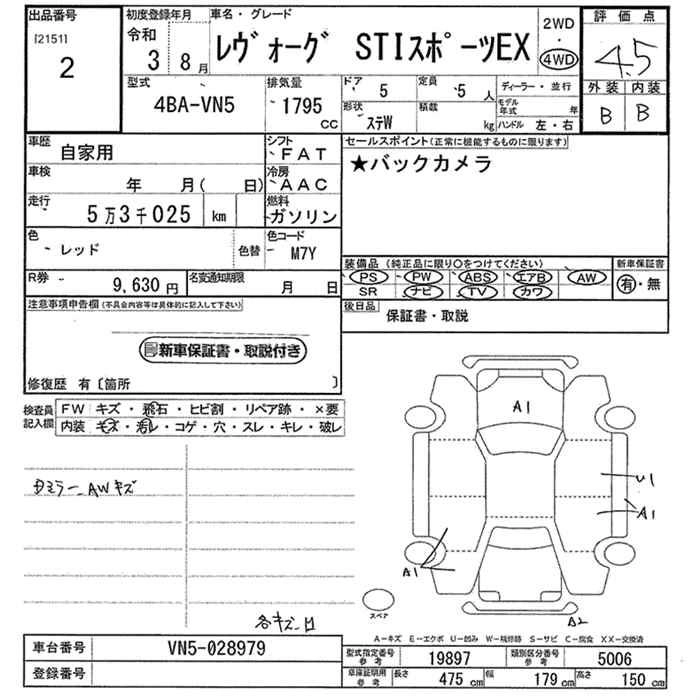 出品番号
[2151]
2
初度登録年月
令和
3 8月
車名・グレード
レヴォーグ STIスポーツEX
2WD
・
4WD
評価点
4.5
外装 内装
B B
型式
4BA-VN5
排気量
1795
cc
ドア
5
定員
5人
形状
ステW
積載
kg
ディーラー・並行
モデル年式 年
ハンドル 左・右
車歴
自家用
シフト
FAT
車検
年 月( 日)
冷房
AAC
走行
5万3千025 km
燃料
ガソリン
色
レッド
色替
色コード
M7Y
R券
9,630円
名変通知期限
月 日
セールスポイント(正常に機能するものに限ります)
★バックカメラ
装備品(純正品に限り○をつけてください)
PS PW ABS エアB AW
SR ナビ TV カワ
新車保証書
有・無
後日品
保証書・取説
注意事項申告欄(不具合内容等は具体的に記入して下さい)
新車保証書・取説付き
修復歴 有〔箇所 〕
検査員記入欄
FW キズ・飛石・ヒビ割・リペア跡・×要
内装 キズ・汚レ・コゲ・穴・スレ・キレ・破レ
AWキズ
A1
U1
A1
A1
A2
スペア
A−キズ E−エクボ U−凹み W−補修跡 S−サビ C−腐食 XX−交換済
車台番号
VN5-028979
登録番号
型式指定番号
参考
19897
類別区分番号
参考
5006
車庫証明用
参考
長さ 475 cm
幅 179 cm
高さ 150 cm